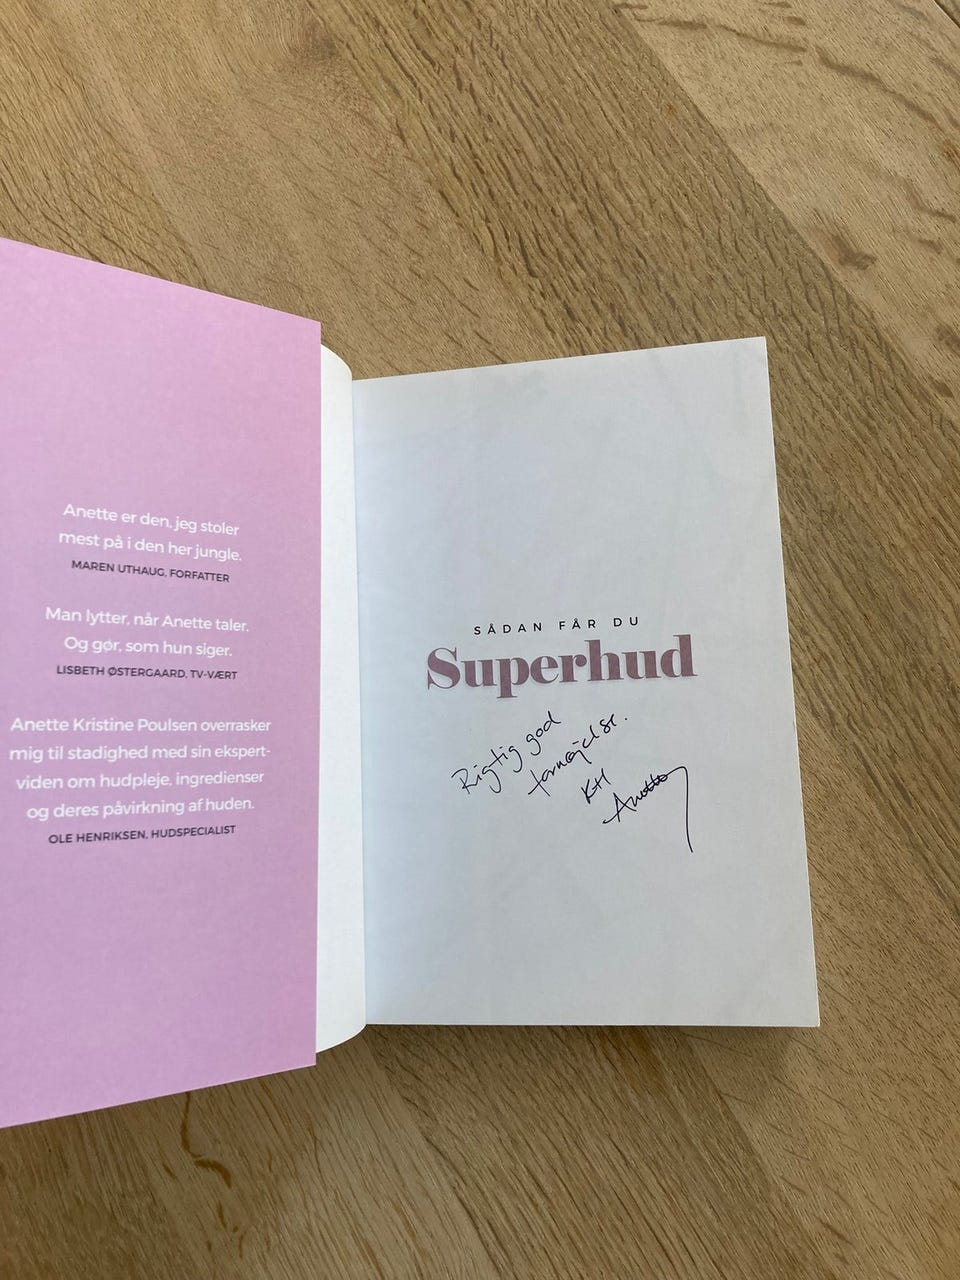 Anette er den, jeg stoler
mest på i den her jungle.
MAREN UTHAUG, FORFATTER
Man lytter, når Anette taler.
Og gør, som hun siger.
LISBETH ØSTERGAARD, TV-VÆRT
Anette Kristine Poulsen overrasker
mig til stadighed med sin ekspert-
viden om hudpleje, ingredienser
og deres påvirkning af huden.
OLE HENRIKSEN, HUDSPECIALIST
SÅDAN FÅR DU
Superhud
Rigtig god
fornøjelse.
KH
Anette